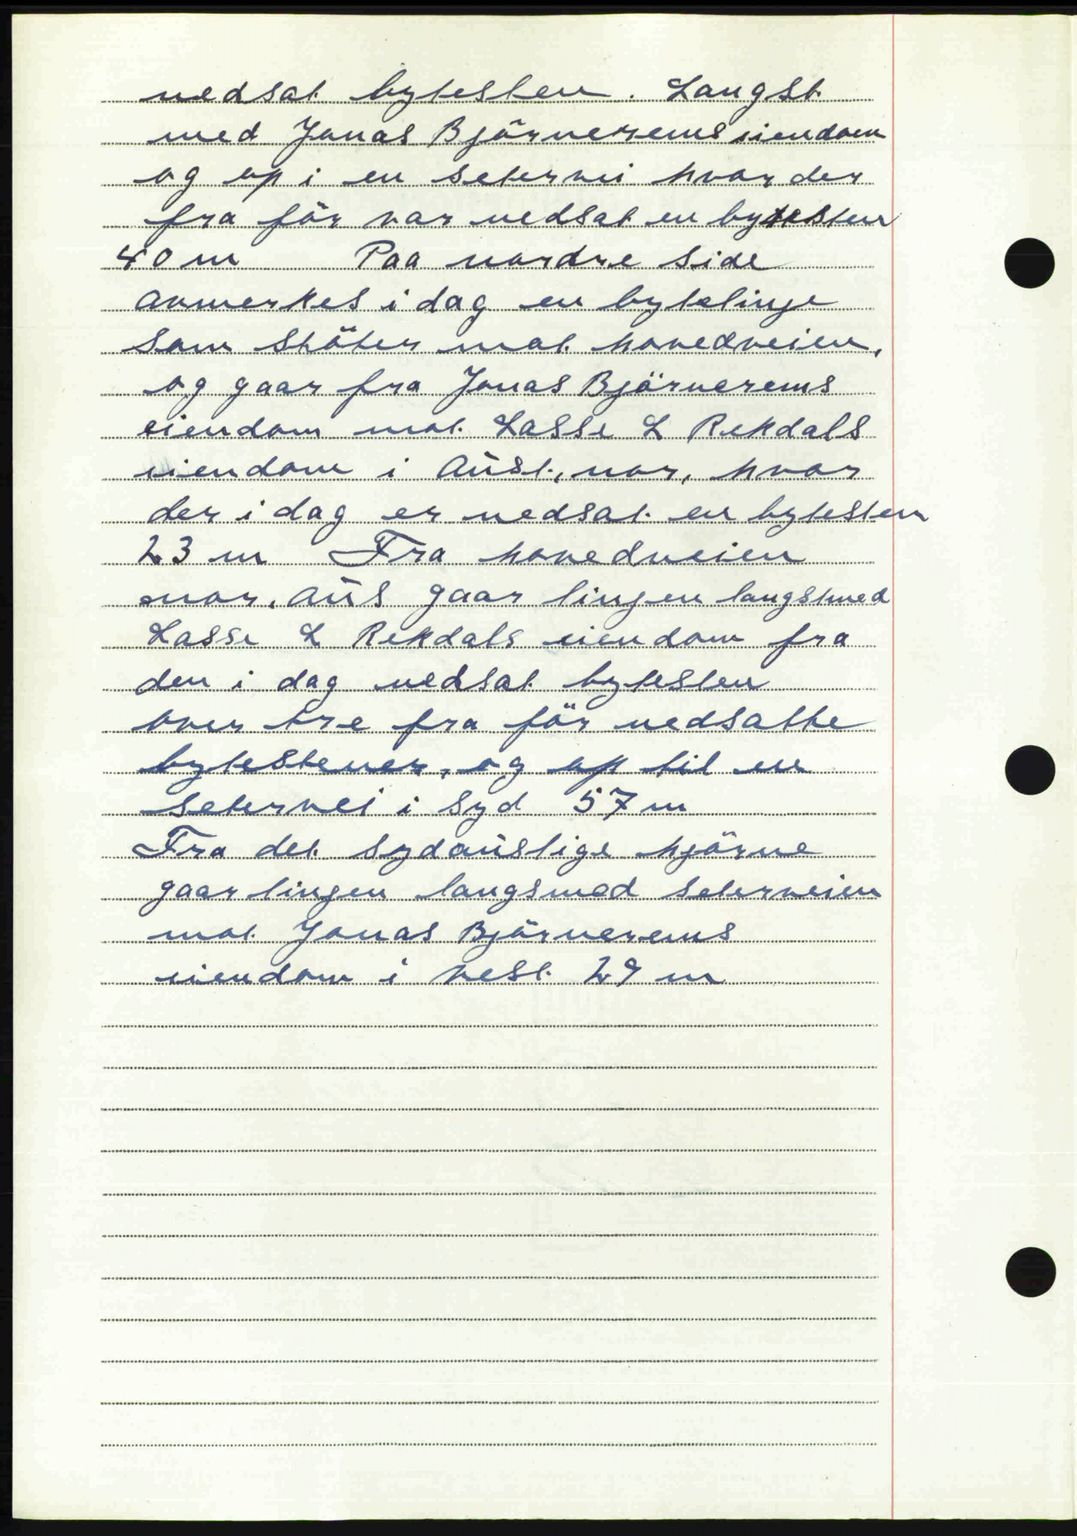 nedsat bytesten. Langst
med Jonas Björnerems eiendom
og op i en setervei hvor der
fra för var nedsat en bytesten
40 m Paa nordre side
anmerkes i dag en bytelinje
som stöter mot hovedveien,
og gaar fra Jonas Björnerems
eiendom mot Lasse L Rekdals
eiendom i Aust, nor, hvor
der i dag er nedsat en bytesten
23 m Fra hovedveien
nor, aus gaar linjen langsmed
Lasse L Rekdals eiendom fra
den i dag nedsat bytesten
over tre fra för nedsatte
bytestener, og op til en
setervei i syd 57 m
Fra det sydaustlige hjörne
gaar linjen langsmed seterveien
mot Jonas Björnerems
eiendom i vest 29 m